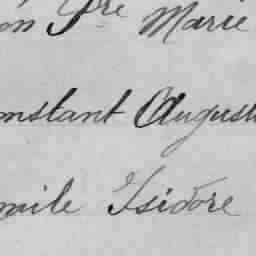 on Pre Marie
onstant August
mile Isidore